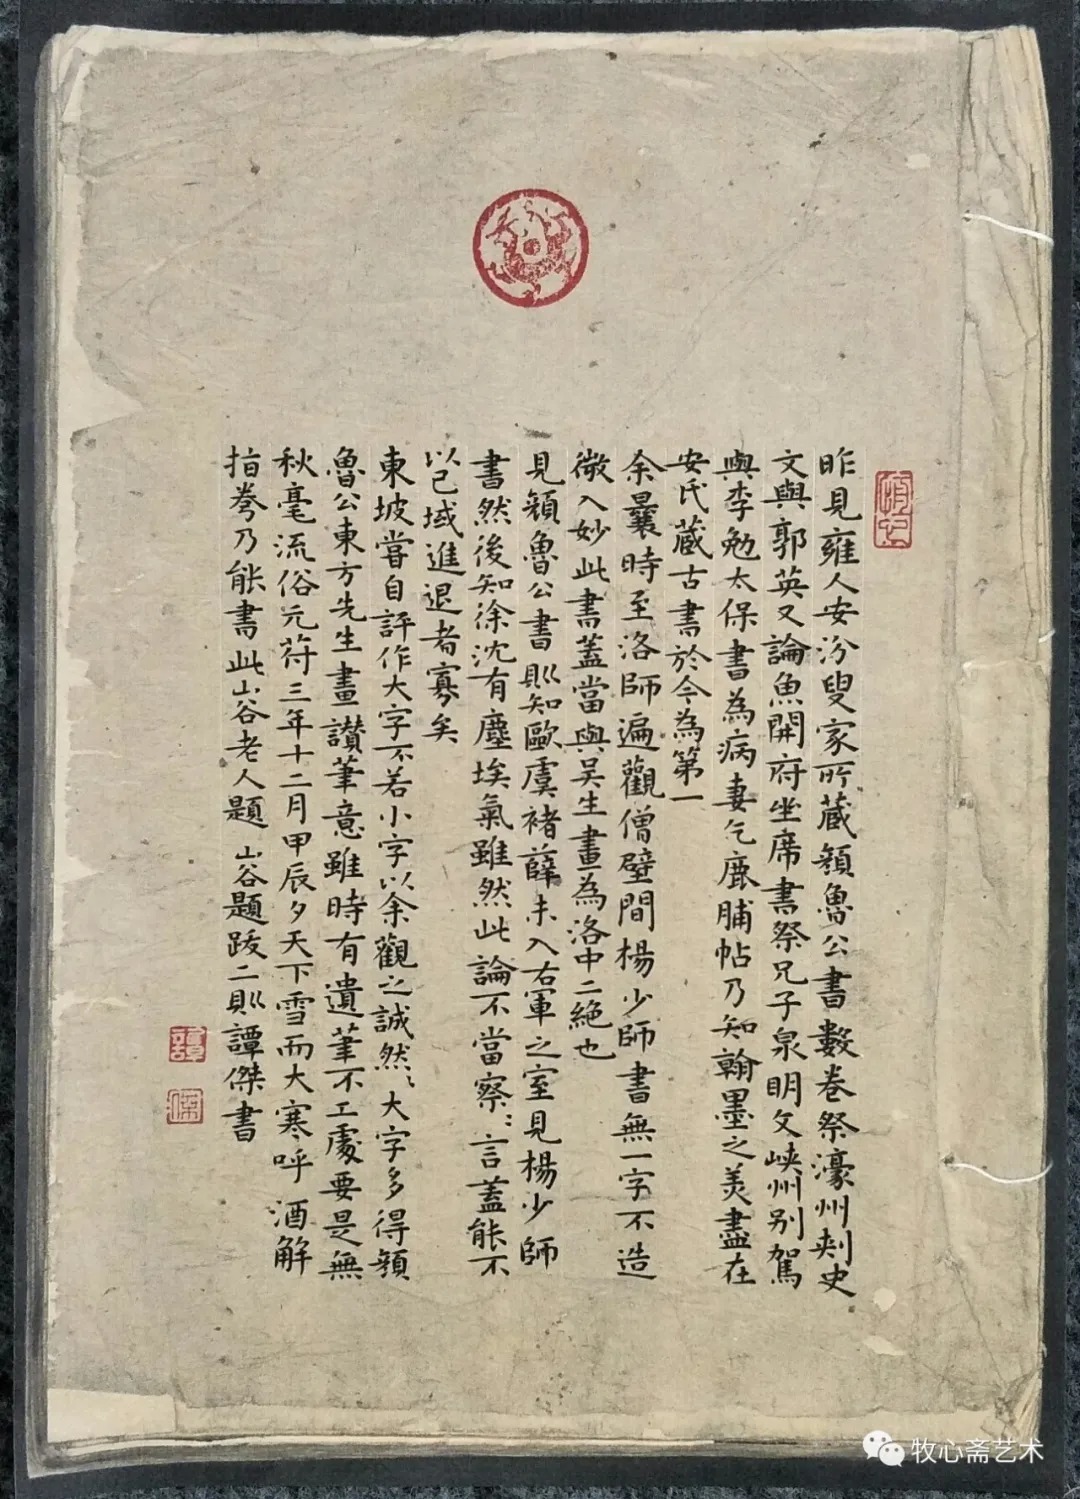 昨見雍人安汾叟家所蔵顏魯公書數卷祭濠州刾史
文與郭英乂論魚開府坐席書祭兄子泉明文峡州别駕
與李勉太保書為病妻乞鹿脯帖乃知翰墨之美盡在
安氏蔵古書於今為第一
余曩時至洛師遍觀僧壁間楊少師書無一字不造
微入妙此書蓋當與吴生畫為洛中二絶也
見顏魯公書則知歐虞褚薛未入右軍之室見楊少師
書然後知徐沈有塵埃氣雖然此論不當察：言蓋能不
以己域進退者寡矣
東坡嘗自評作大字不若小字以余觀之誠然大字多得顏
魯公東方先生畫讃筆意雖時有遺筆不工處要是無
秋毫流俗元符三年十二月甲辰夕天下雪而大寒呼酒解
指拳乃能書此山谷老人題 山谷題跋二則譚傑書
譚
傑
牧心斋艺术